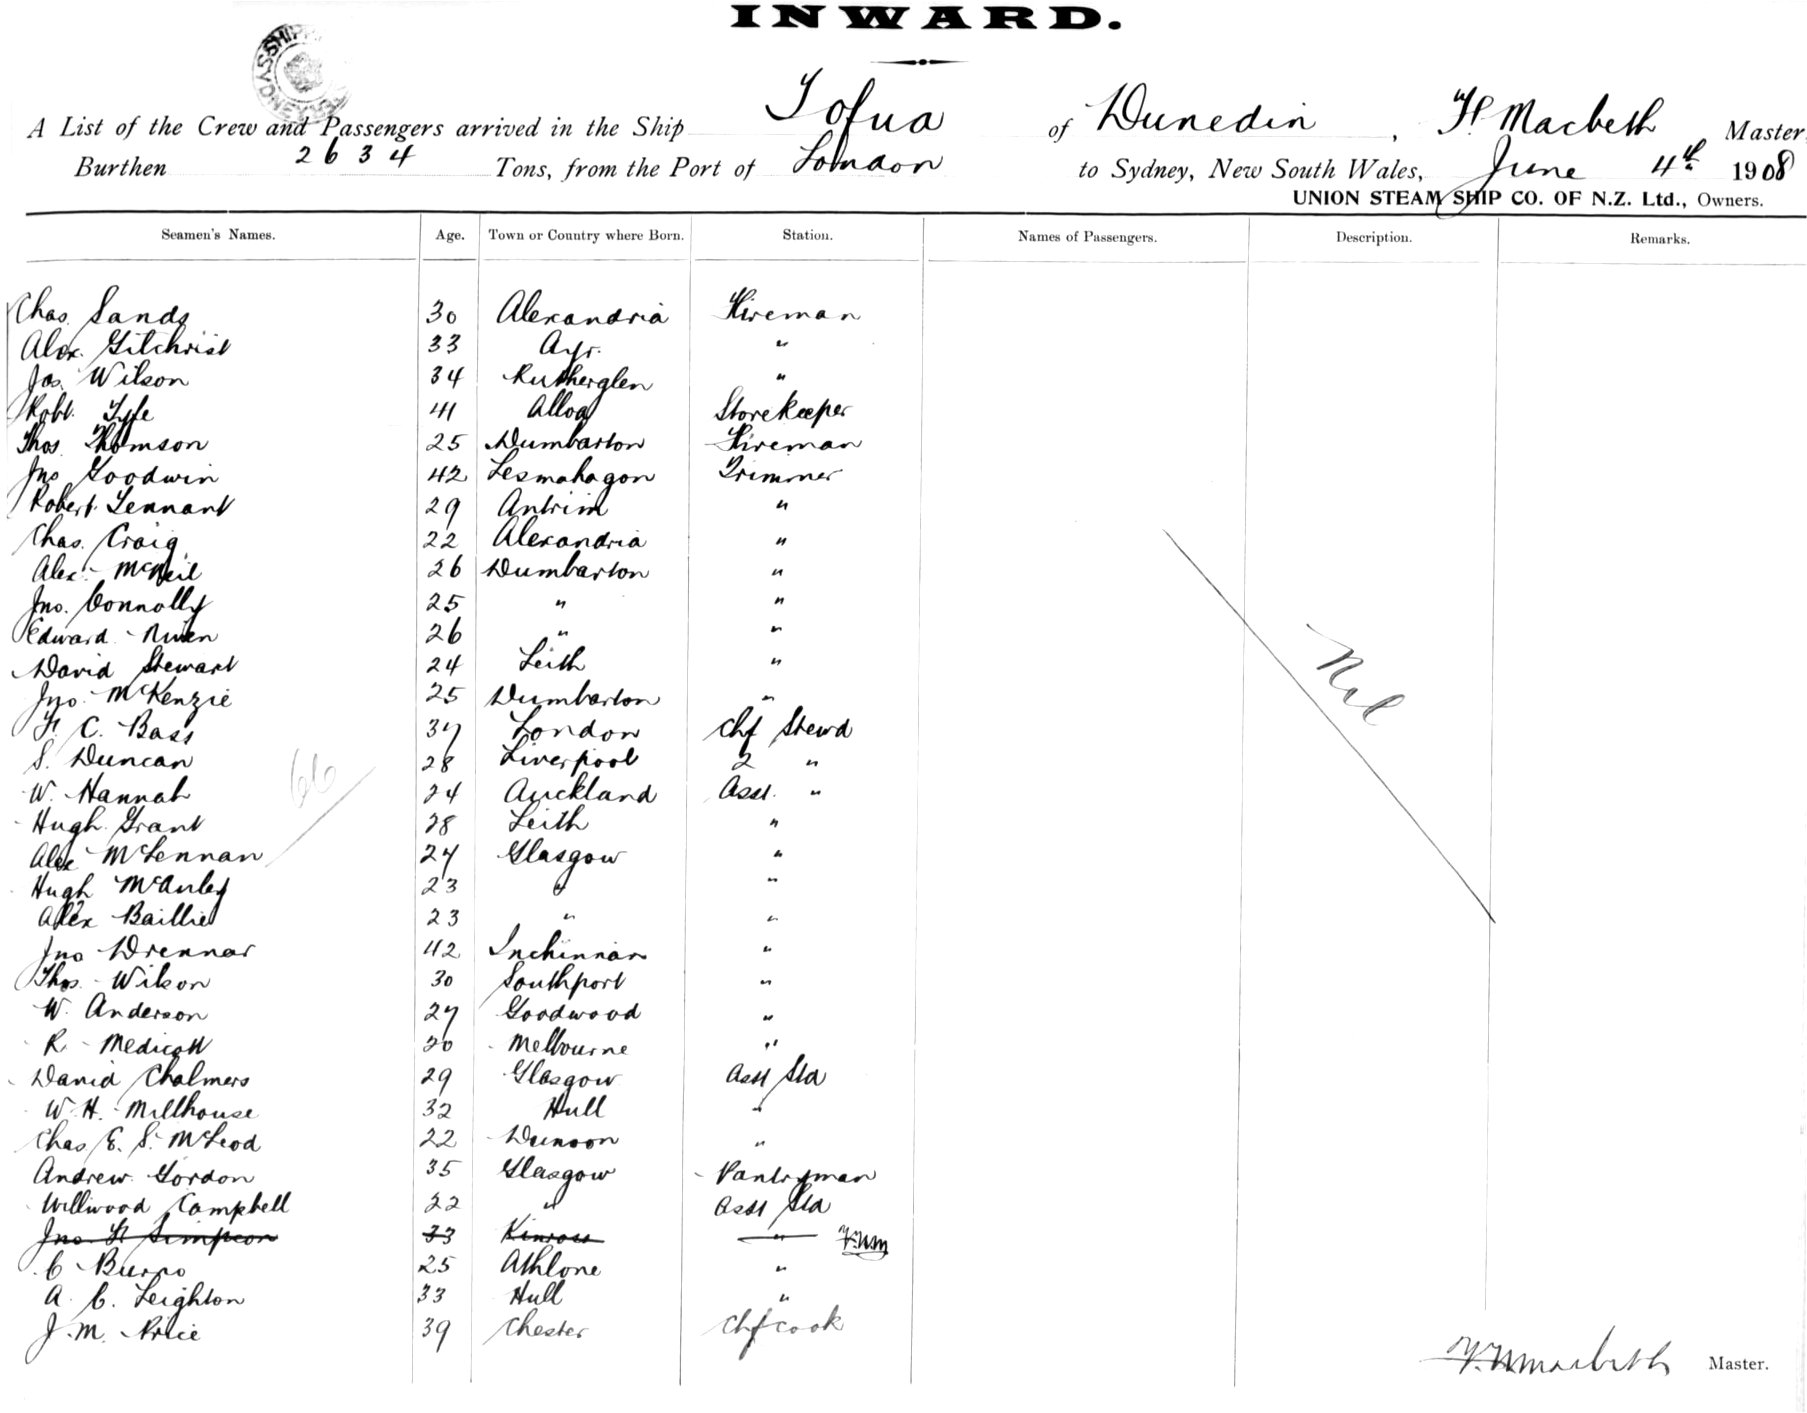 INWARD.
A List of the Crew and Passengers arrived in the Ship Tofua of Dunedin, Macbeth Master,
Burthen 2634 Tons, from the Port of London to Sydney, New South Wales, June 4th 1908
UNION STEAM SHIP CO. OF N.Z. Ltd., Owners.
Seamen's Names. Age. Town or Country where Born. Station. Names of Passengers. Description. Remarks.
Chas. Sands 30 Alexandria Fireman
Alex. Gilchrist 33 Ayr. "
Jas. Wilson 34 Rutherglen "
Robt. Fyfe 41 Alloa Storekeeper
Thos. Thomson 25 Dumbarton Fireman
Jno Goodwin 42 Lesmahagon Trimmer
Robert Tennant 29 Antrim "
Chas. Craig 22 Alexandria "
Alex. McNeil 26 Dumbarton "
Jno. Connolly 25 " "
Edward 26 " "
David Stewart 24 Leith "
Jno. McKenzie 25 Dumbarton "
C. Bass 37 London Chf Stewd
S. Duncan 28 Liverpool 2 "
W. Hannah 24 Auckland Asst. "
Hugh Grant 28 Leith "
Alex McLennan 27 Glasgow "
Hugh McAuley 23 " "
Alex Baillie 23 " "
Jno Drennar 42 Inchinnan "
Thos. Wilson 30 Southport "
W. Anderson 27 Goodwood "
R. Medicott 20 Melbourne "
David Chalmers 29 Glasgow Asst Std
W. H. Millhouse 32 Hull "
Chas E. S. McLeod 22 Dunoon "
Andrew Gordon 35 Glasgow Pantryman
Williwood Campbell 22 " Asst Std
Jno Simpson 33 Kinross "
C Burns 25 Athlone "
A. C. Leighton 33 Hull "
J. M. Price 39 Chester Chf cook
66
Nil
Macbeth Master.